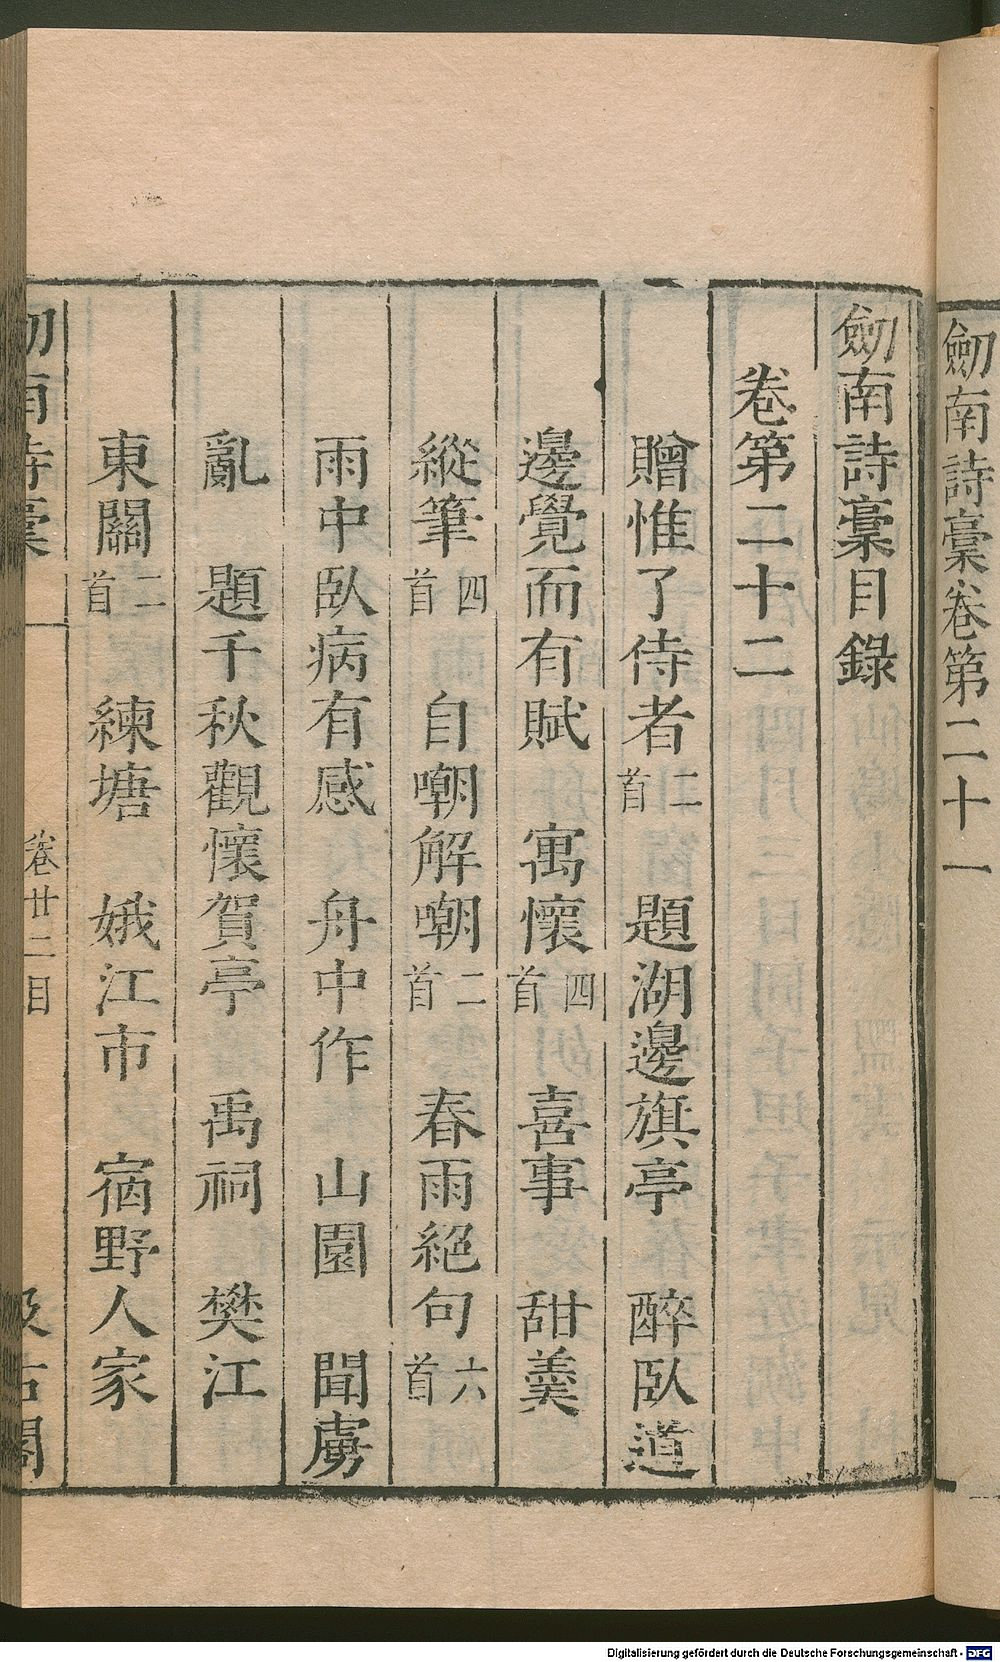 劒南詩稾卷第二十一
劒南詩稾目錄
卷第二十二
贈惟了侍者二首　題湖邊旗亭　醉臥道
邊覺而有賦　寓懷四首　喜事　甜羹
縱筆四首　自嘲解嘲二首　春雨絕句六首
雨中臥病有感　舟中作　山園　聞虜
亂　題千秋觀懷賀亭　禹祠　樊江
東關二首　練塘　娥江市　宿野人家
劒南詩稾　卷廿二目　汲古閣
Digitalisierung gefördert durch die Deutsche Forschungsgemeinschaft - DFG